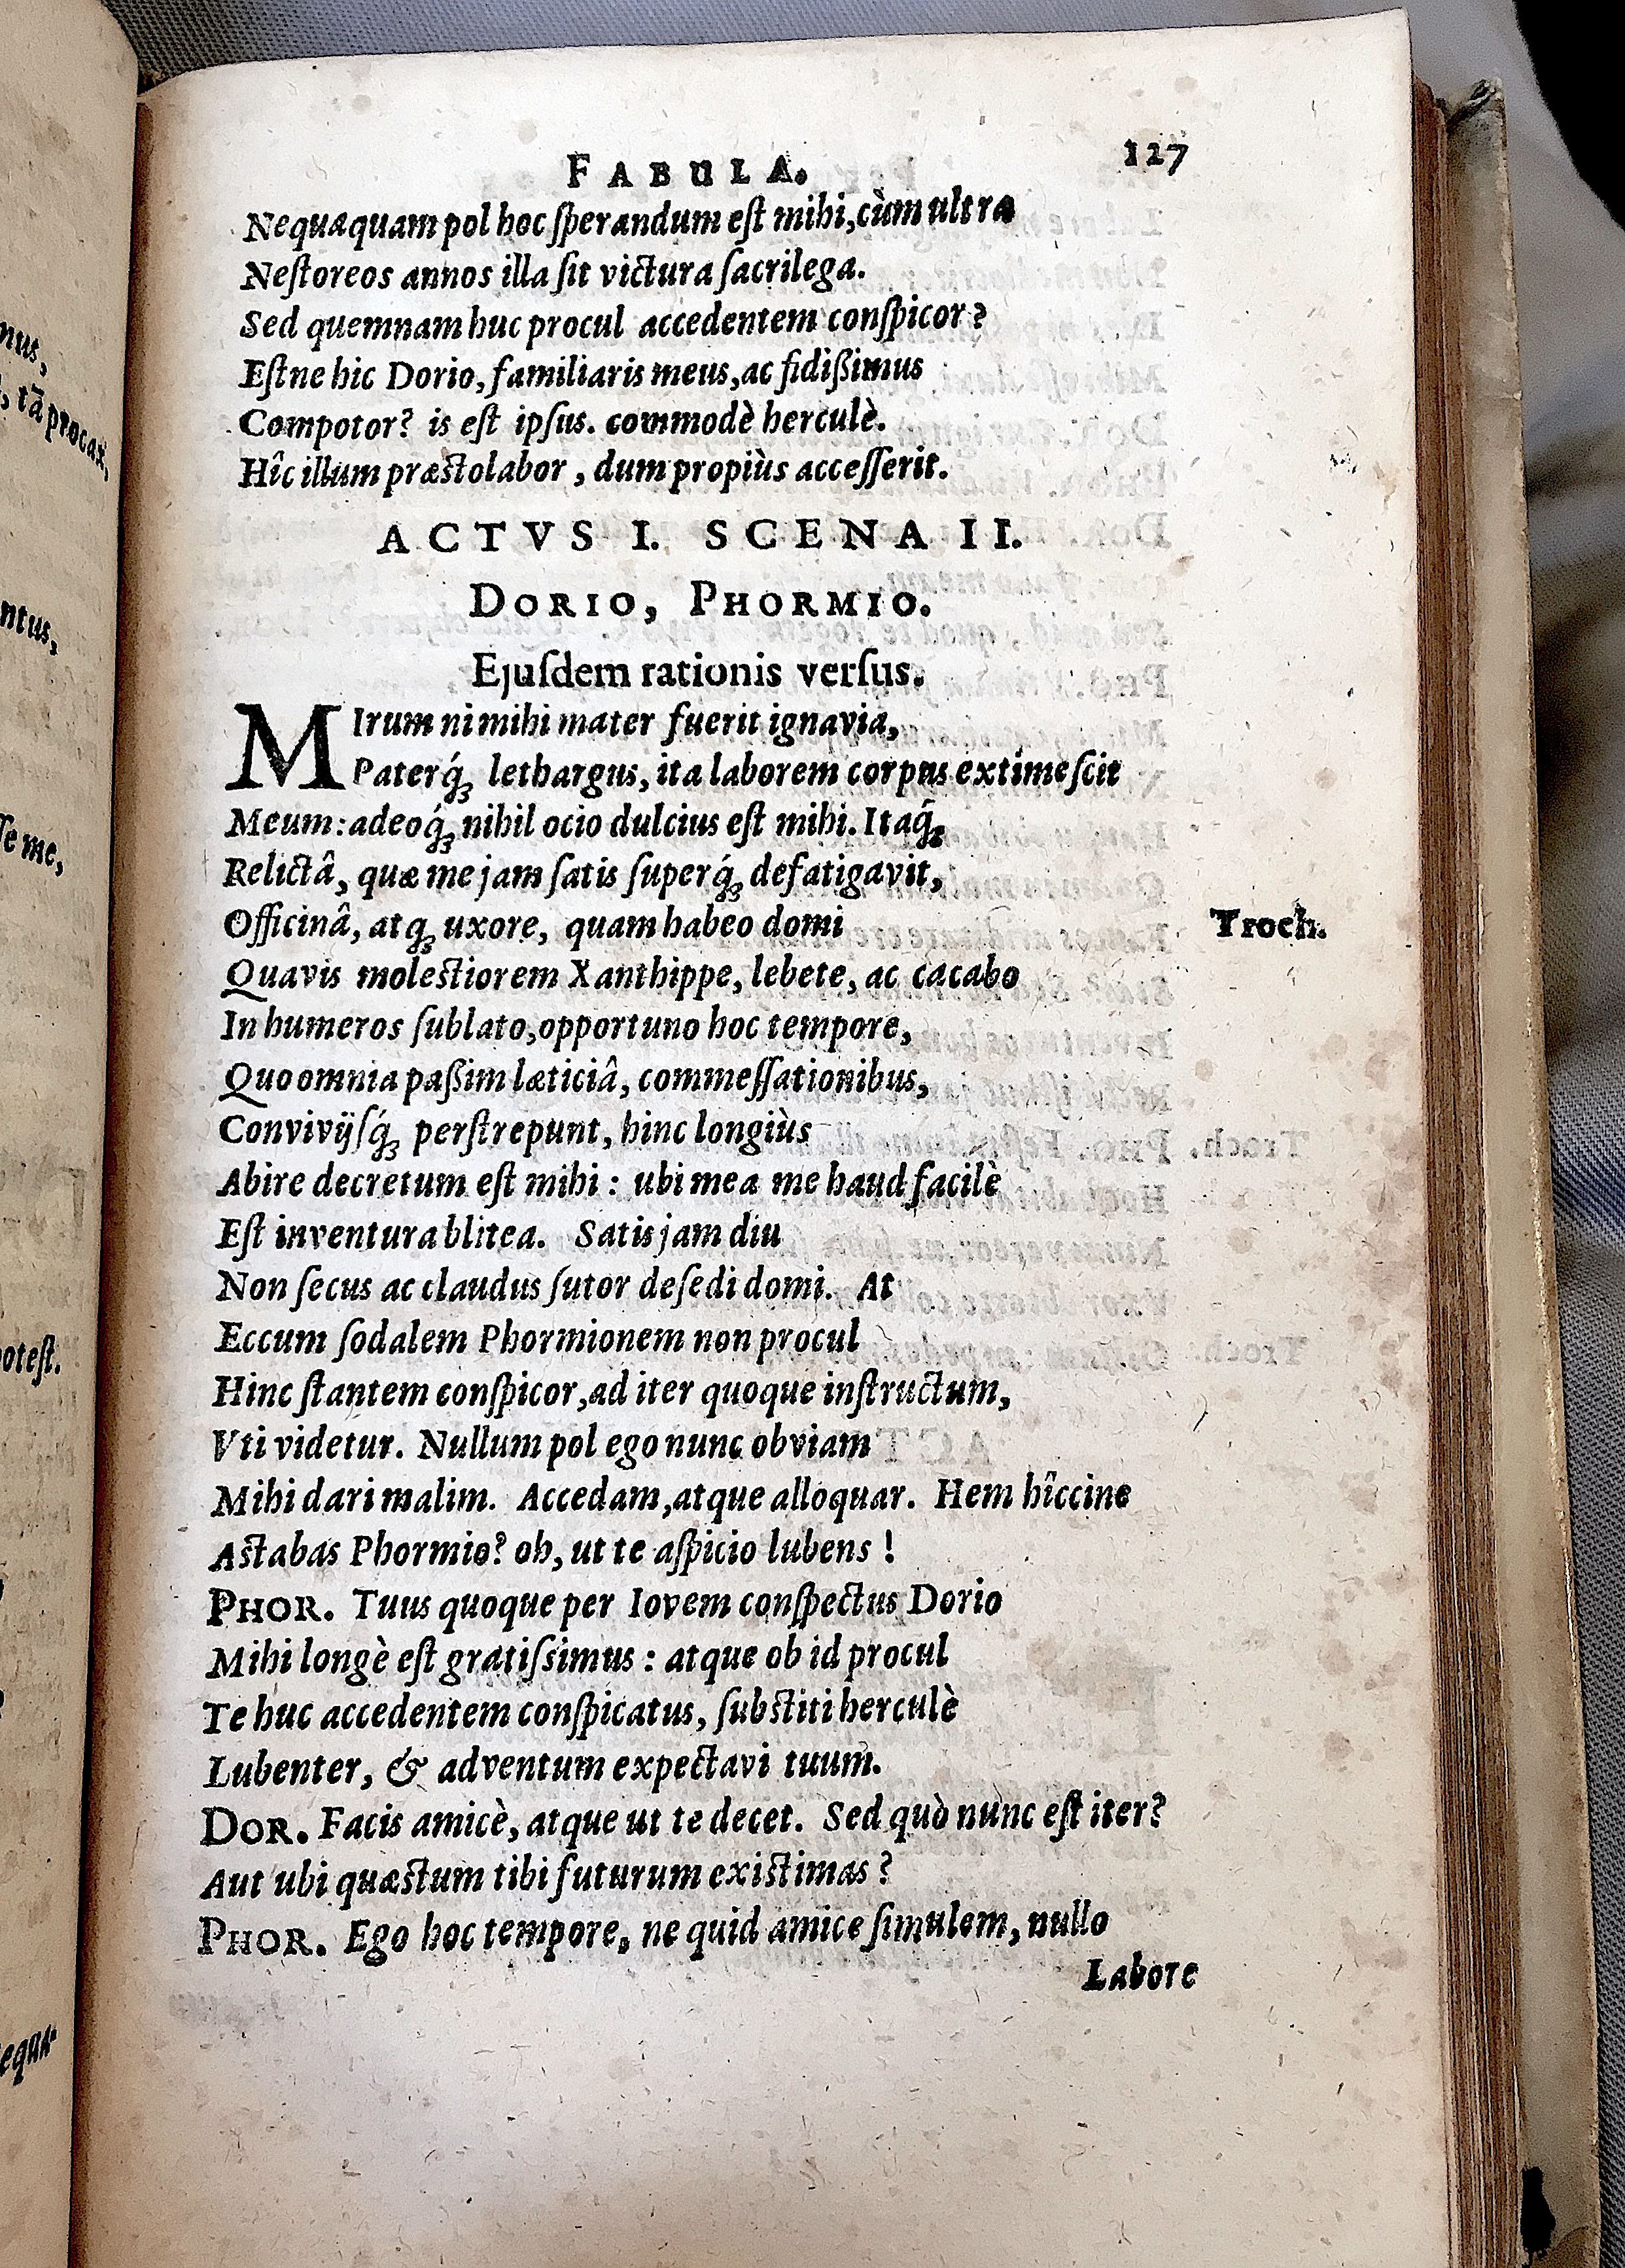 FABULA. 127
Nequaquam pol hoc ſperandum eſt mihi, cùm ultra
Neſtoreos annos illa ſit victura ſacrilega.
Sed quemnam huc procul accedentem conſpicor?
Eſtne hic Dorio, familiaris meus, ac fidißimus
Compotor? is eſt ipſus. commodè herculè.
Hîc illum præſtolabor, dum propiùs acceſſerit.
ACTVS I. SCENA II.
DORIO, PHORMIO.
Ejuſdem rationis verſus.
MIrum ni mihi mater fuerit ignavia,
Paterq́ꝫ lethargus, ita laborem corpus extimeſcit
Meum: adeoq́ꝫ nihil ocio dulcius eſt mihi. Itaq́ꝫ
Relictâ, quæ me jam ſatis ſuperq́ꝫ defatigavit,
Officinâ, atqꝫ uxore, quam habeo domi Troch.
Quavis moleſtiorem Xanthippe, lebete, ac cacabo
In humeros ſublato, opportuno hoc tempore,
Quo omnia paßim læticiâ, commeſſationibus,
Convivijſq́ꝫ perſtrepunt, hinc longiùs
Abire decretum eſt mihi: ubi mea me haud facilè
Eſt inventura blitea. Satis jam diu
Non ſecus ac claudus ſutor deſedi domi. At
Eccum ſodalem Phormionem non procul
Hinc ſtantem conſpicor, ad iter quoque inſtructum,
Vti videtur. Nullum pol ego nunc obviam
Mihi dari malim. Accedam, atque alloquar. Hem hîccine
Aſtabas Phormio? oh, ut te aſpicio lubens!
PHOR. Tuus quoque per Iovem conſpectus Dorio
Mihi longè eſt gratiſsimus: atque ob id procul
Te huc accedentem conſpicatus, ſubſtiti herculè
Lubenter, & adventum expectavi tuum.
DOR. Facis amicè, atque ut te decet. Sed quò nunc eſt iter?
Aut ubi quæſtum tibi futurum exiſtimas?
PHOR. Ego hoc tempore, ne quid amice ſimulem, nullo
Labore
nus,
tā procax,
ntus,
ſe me,
oteſt.
equa-